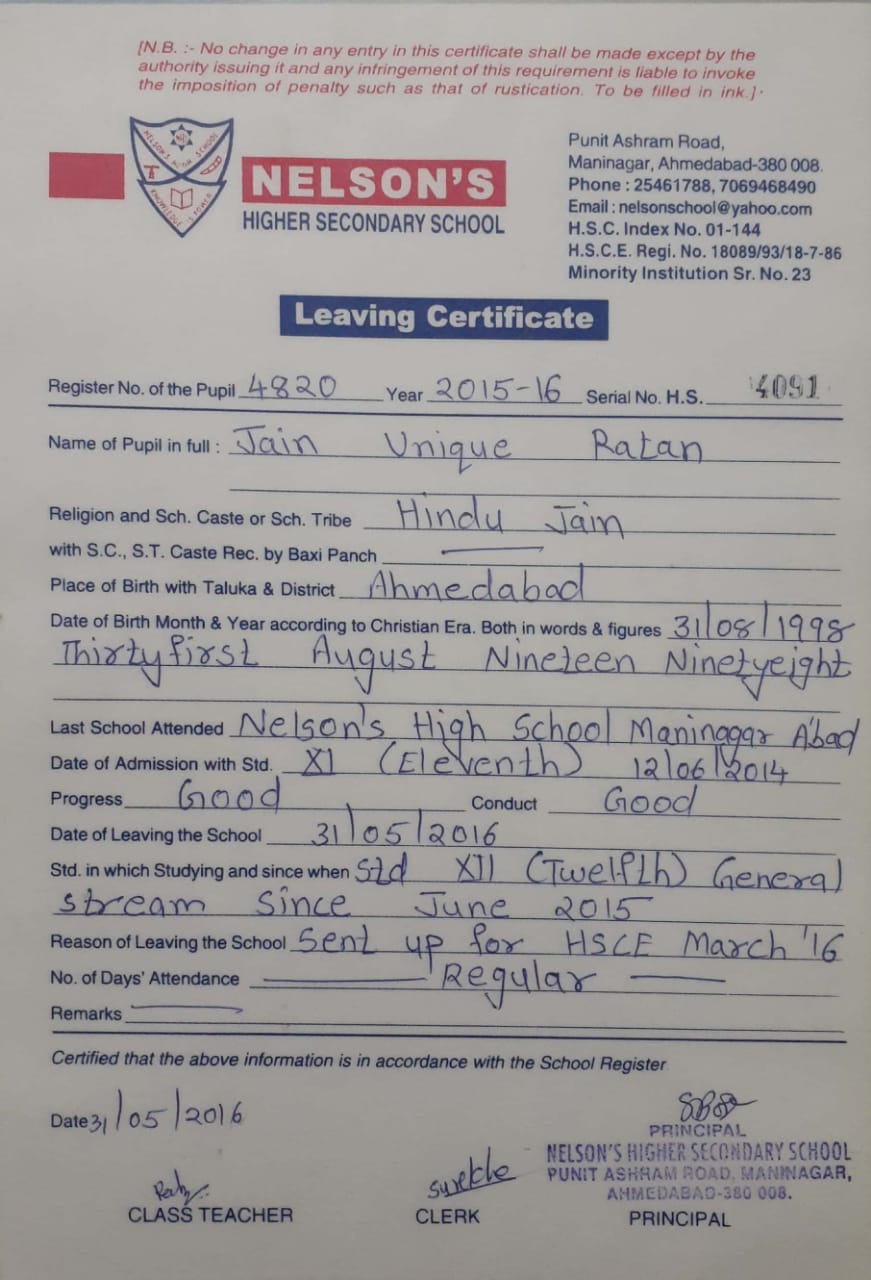 [N.B. :- No change in any entry in this certificate shall be made except by the
authority issuing it and any infringement of this requirement is liable to invoke
the imposition of penalty such as that of rustication. To be filled in ink.]
NELSON'S
HIGHER SECONDARY SCHOOL
Punit Ashram Road,
Maninagar, Ahmedabad-380 008.
Phone : 25461788, 7069468490
Email : nelsonschool@yahoo.com
H.S.C. Index No. 01-144
H.S.C.E. Regi. No. 18089/93/18-7-86
Minority Institution Sr. No. 23
Leaving Certificate
Register No. of the Pupil 4820 Year 2015-16 Serial No. H.S. 4091
Name of Pupil in full : Jain Unique Ratan
Religion and Sch. Caste or Sch. Tribe Hindu Jain
with S.C., S.T. Caste Rec. by Baxi Panch
Place of Birth with Taluka & District Ahmedabad
Date of Birth Month & Year according to Christian Era. Both in words & figures 31/08/1998
Thirtyfirst August Nineteen Ninetyeight
Last School Attended Nelson's High School Maninagar A'bad
Date of Admission with Std. XI (Eleventh) 12/06/2014
Progress Good Conduct Good
Date of Leaving the School 31/05/2016
Std. in which Studying and since when Std XII (Twelfth) General
stream since June 2015
Reason of Leaving the School Sent up for HSCE March '16
No. of Days' Attendance Regular
Remarks
Certified that the above information is in accordance with the School Register
Date 31/05/2016
PRINCIPAL
NELSON'S HIGHER SECONDARY SCHOOL
PUNIT ASHRAM ROAD, MANINAGAR,
AHMEDABAD-380 008.
CLASS TEACHER CLERK PRINCIPAL